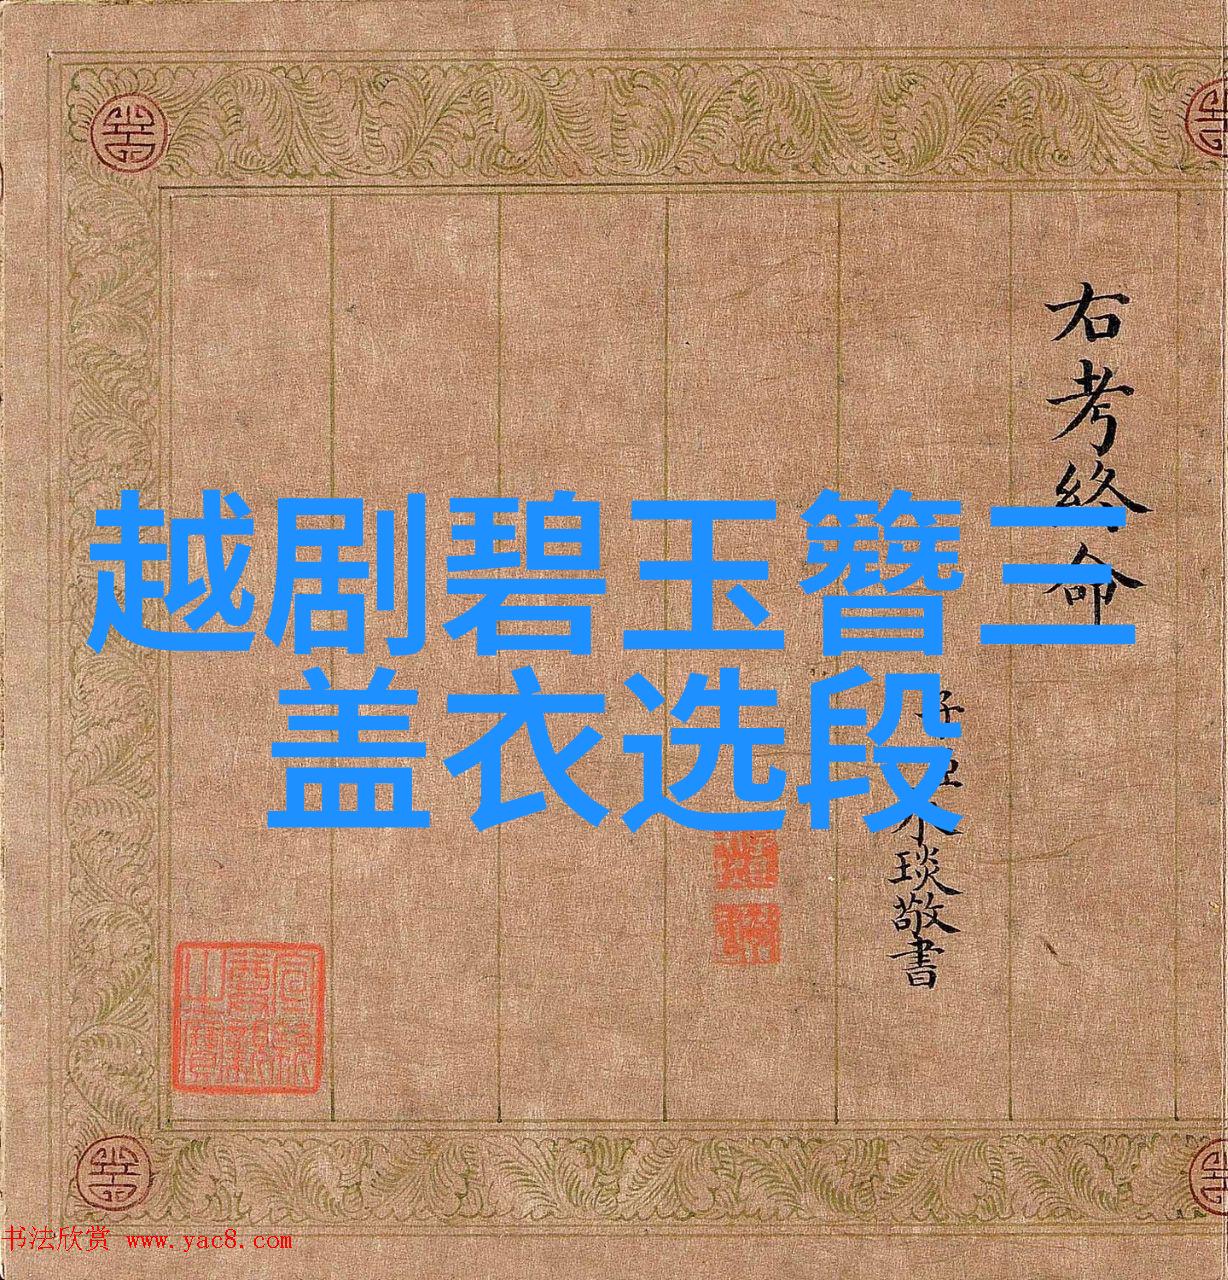 越剧碧玉簪三
盖衣选段
右考終命
子臣永琰敬書
书法欣赏 www.yac8.com